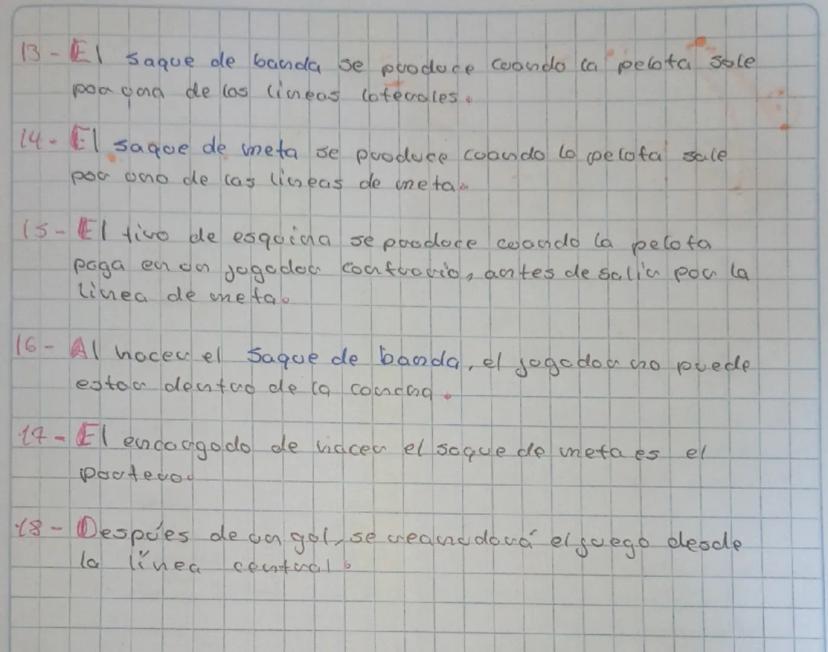 13- El saque de banda se produce cuando la pelota sale
por una de las lineas laterales.
14- El saque de meta se produce cuando la pelota sale
por una de las lineas de meta.
15- El tiro de esquina se produce cuando la pelota
pega en un jugador contrario, antes de salir por la
linea de meta.
16- Al hacer el saque de banda, el jugador no puede
estar dentro de la cancha.
17- El encargado de hacer el saque de meta es el
portero.
18- Despúes de un gol, se reanudará el juego desde
la línea central.